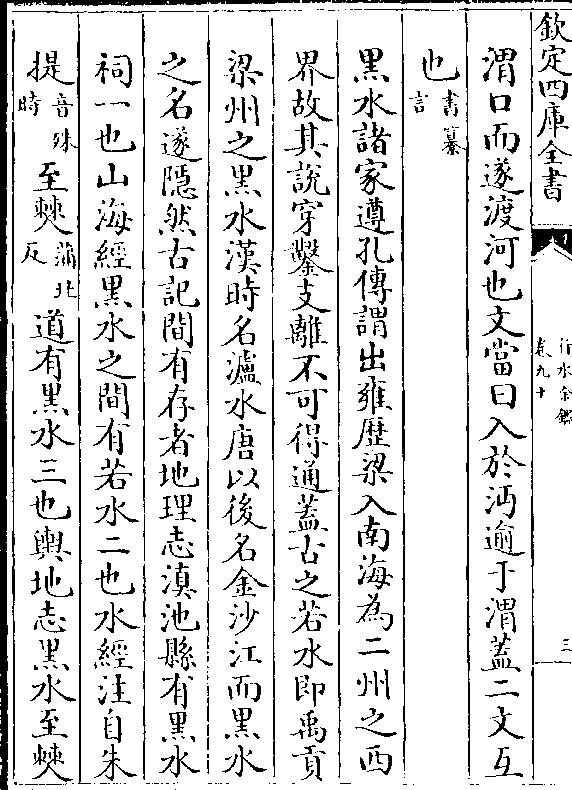 欽定四庫全書
行水金鑑
卷九十
三
渭口而遂渡河也文當曰入於沔逾于渭蓋二文互
也書纂言
黑水諸家遵孔傳謂出雍歷梁入南海為二州之西
界故其說穿鑿支離不可得通蓋古之若水即禹貢
梁州之黑水漢時名瀘水唐以後名金沙江而黑水
之名遂隱然古記間有存者地理志滇池縣有黑水
祠一也山海經黑水之間有若水二也水經注自朱
提音殊時至僰蒲北反道有黑水三也輿地志黑水至僰